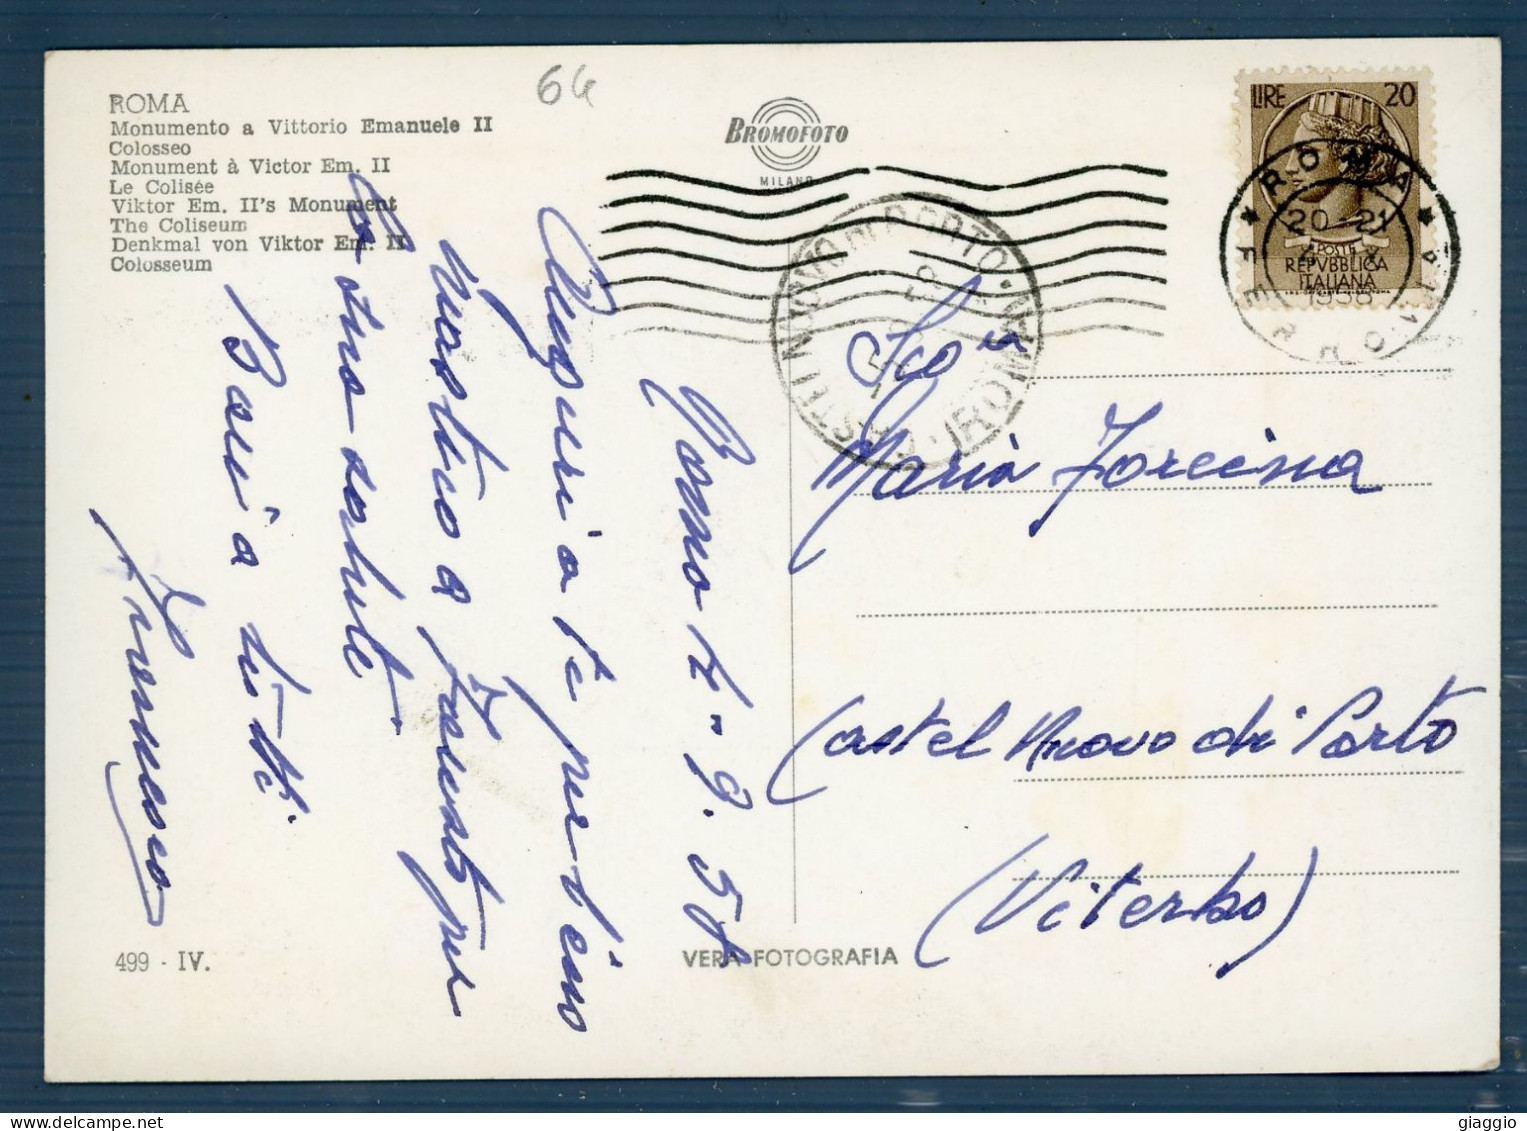 64
ROMA
Monumento a Vittorio Emanuele II
Colosseo
Monument à Victor Em. II
Le Colisée
Viktor Em. II's Monument
The Coliseum
Denkmal von Viktor Em. II
Colosseum
BROMOFOTO
MILANO
LIRE 20
POSTE
REPVBBLICA
ITALIANA
ROMA
FERROVIA
20-21
1958
CASTELNUOVO DI PORTO
(ROMA)
Roma 9.58
Auguri a te per l'
a Fausto per
la tua salute.
Baci a tutti.
Francesco
Maria Forcina
Castel Nuovo di Porto
(Viterbo)
499 - IV.
VERA FOTOGRAFIA
giaggio